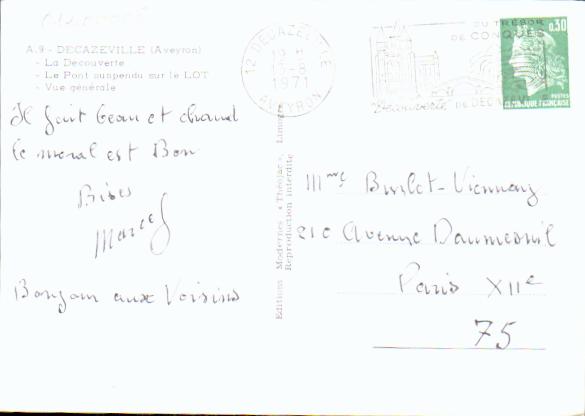 A.9 - DECAZEVILLE (Aveyron)
- La Découverte
- Le Pont suspendu sur le LOT
- Vue générale
Il fait beau et chaud
le moral est Bon
Bises
Marcel
Bonjour aux Voisins
Editions Modernes « Théojac », Limoges
Reproduction interdite
12 DECAZEVILLE
1971
AVEYRON
DU TRÉSOR
DE CONQUES
"Découverte" DE DECAZEVILLE
0,30
POSTES
REPUBLIQUE FRANÇAISE
Mme Burlot-Viennay
210 Avenue Daumesnil
Paris XIIe
75